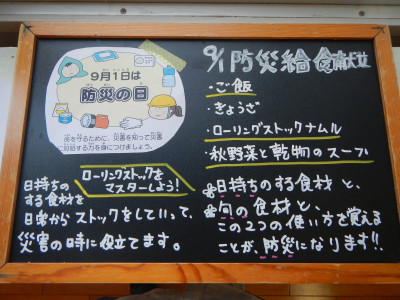 9月1日は
防災の日
命を守るために、災害を知って災害
に対処する力を身につけましょう。
ローリングストックを
マスターしよう!
日持ちの
する食材を
日常からストックをしていって、
災害の時に役立てます。
9/1 防災給食献立
・ご飯
・ぎょうざ
・ローリングストックナムル
・秋野菜と乾物のスープ
日持ちのする食材と、
旬の食材と、
この2つの使い方を覚える
ことが、防災になります!!